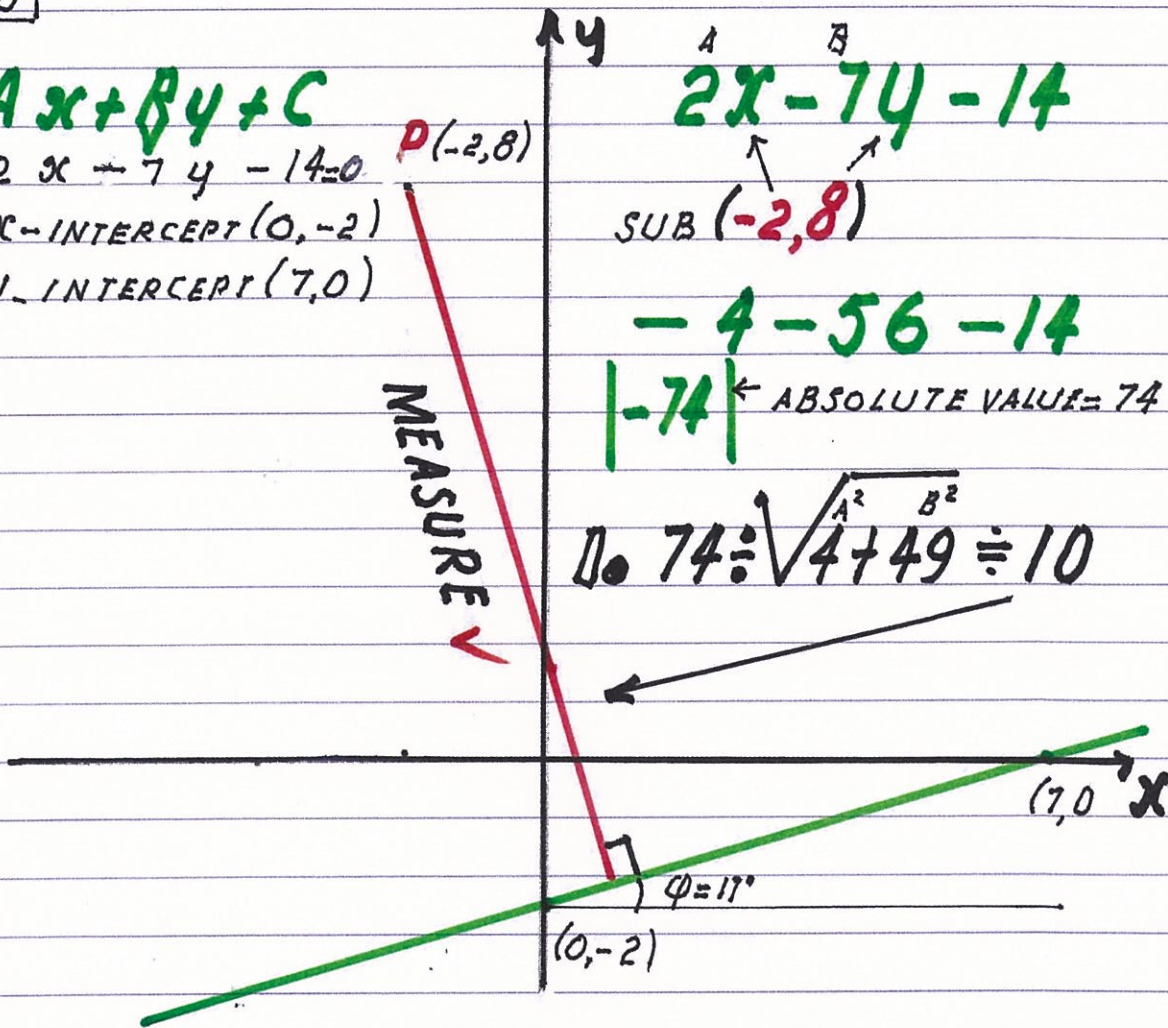 y
Ax+By+C
2x-7y-14=0
X-INTERCEPT(0,-2)
Y-INTERCEPT(7,0)
P(-2,8)
A B
2x-7y-14
SUB (-2,8)
-4-56-14
|-74| ← ABSOLUTE VALUE=74
MEASURE
D. 74÷√4+49 ≑10
A² B²
(7,0
x
φ=17°
(0,-2)